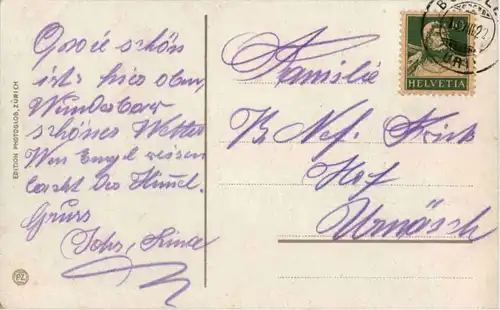 O wie schön
ists hier oben,
Wunderbar
schönes Wetter
Wen Engel reisen
lacht Der Himel.
Gruss
EDITION PHOTOGLOB, ZÜRICH
PZ
HELVETIA
Familie
B. Nef. Frick
Hof
Urnäsch